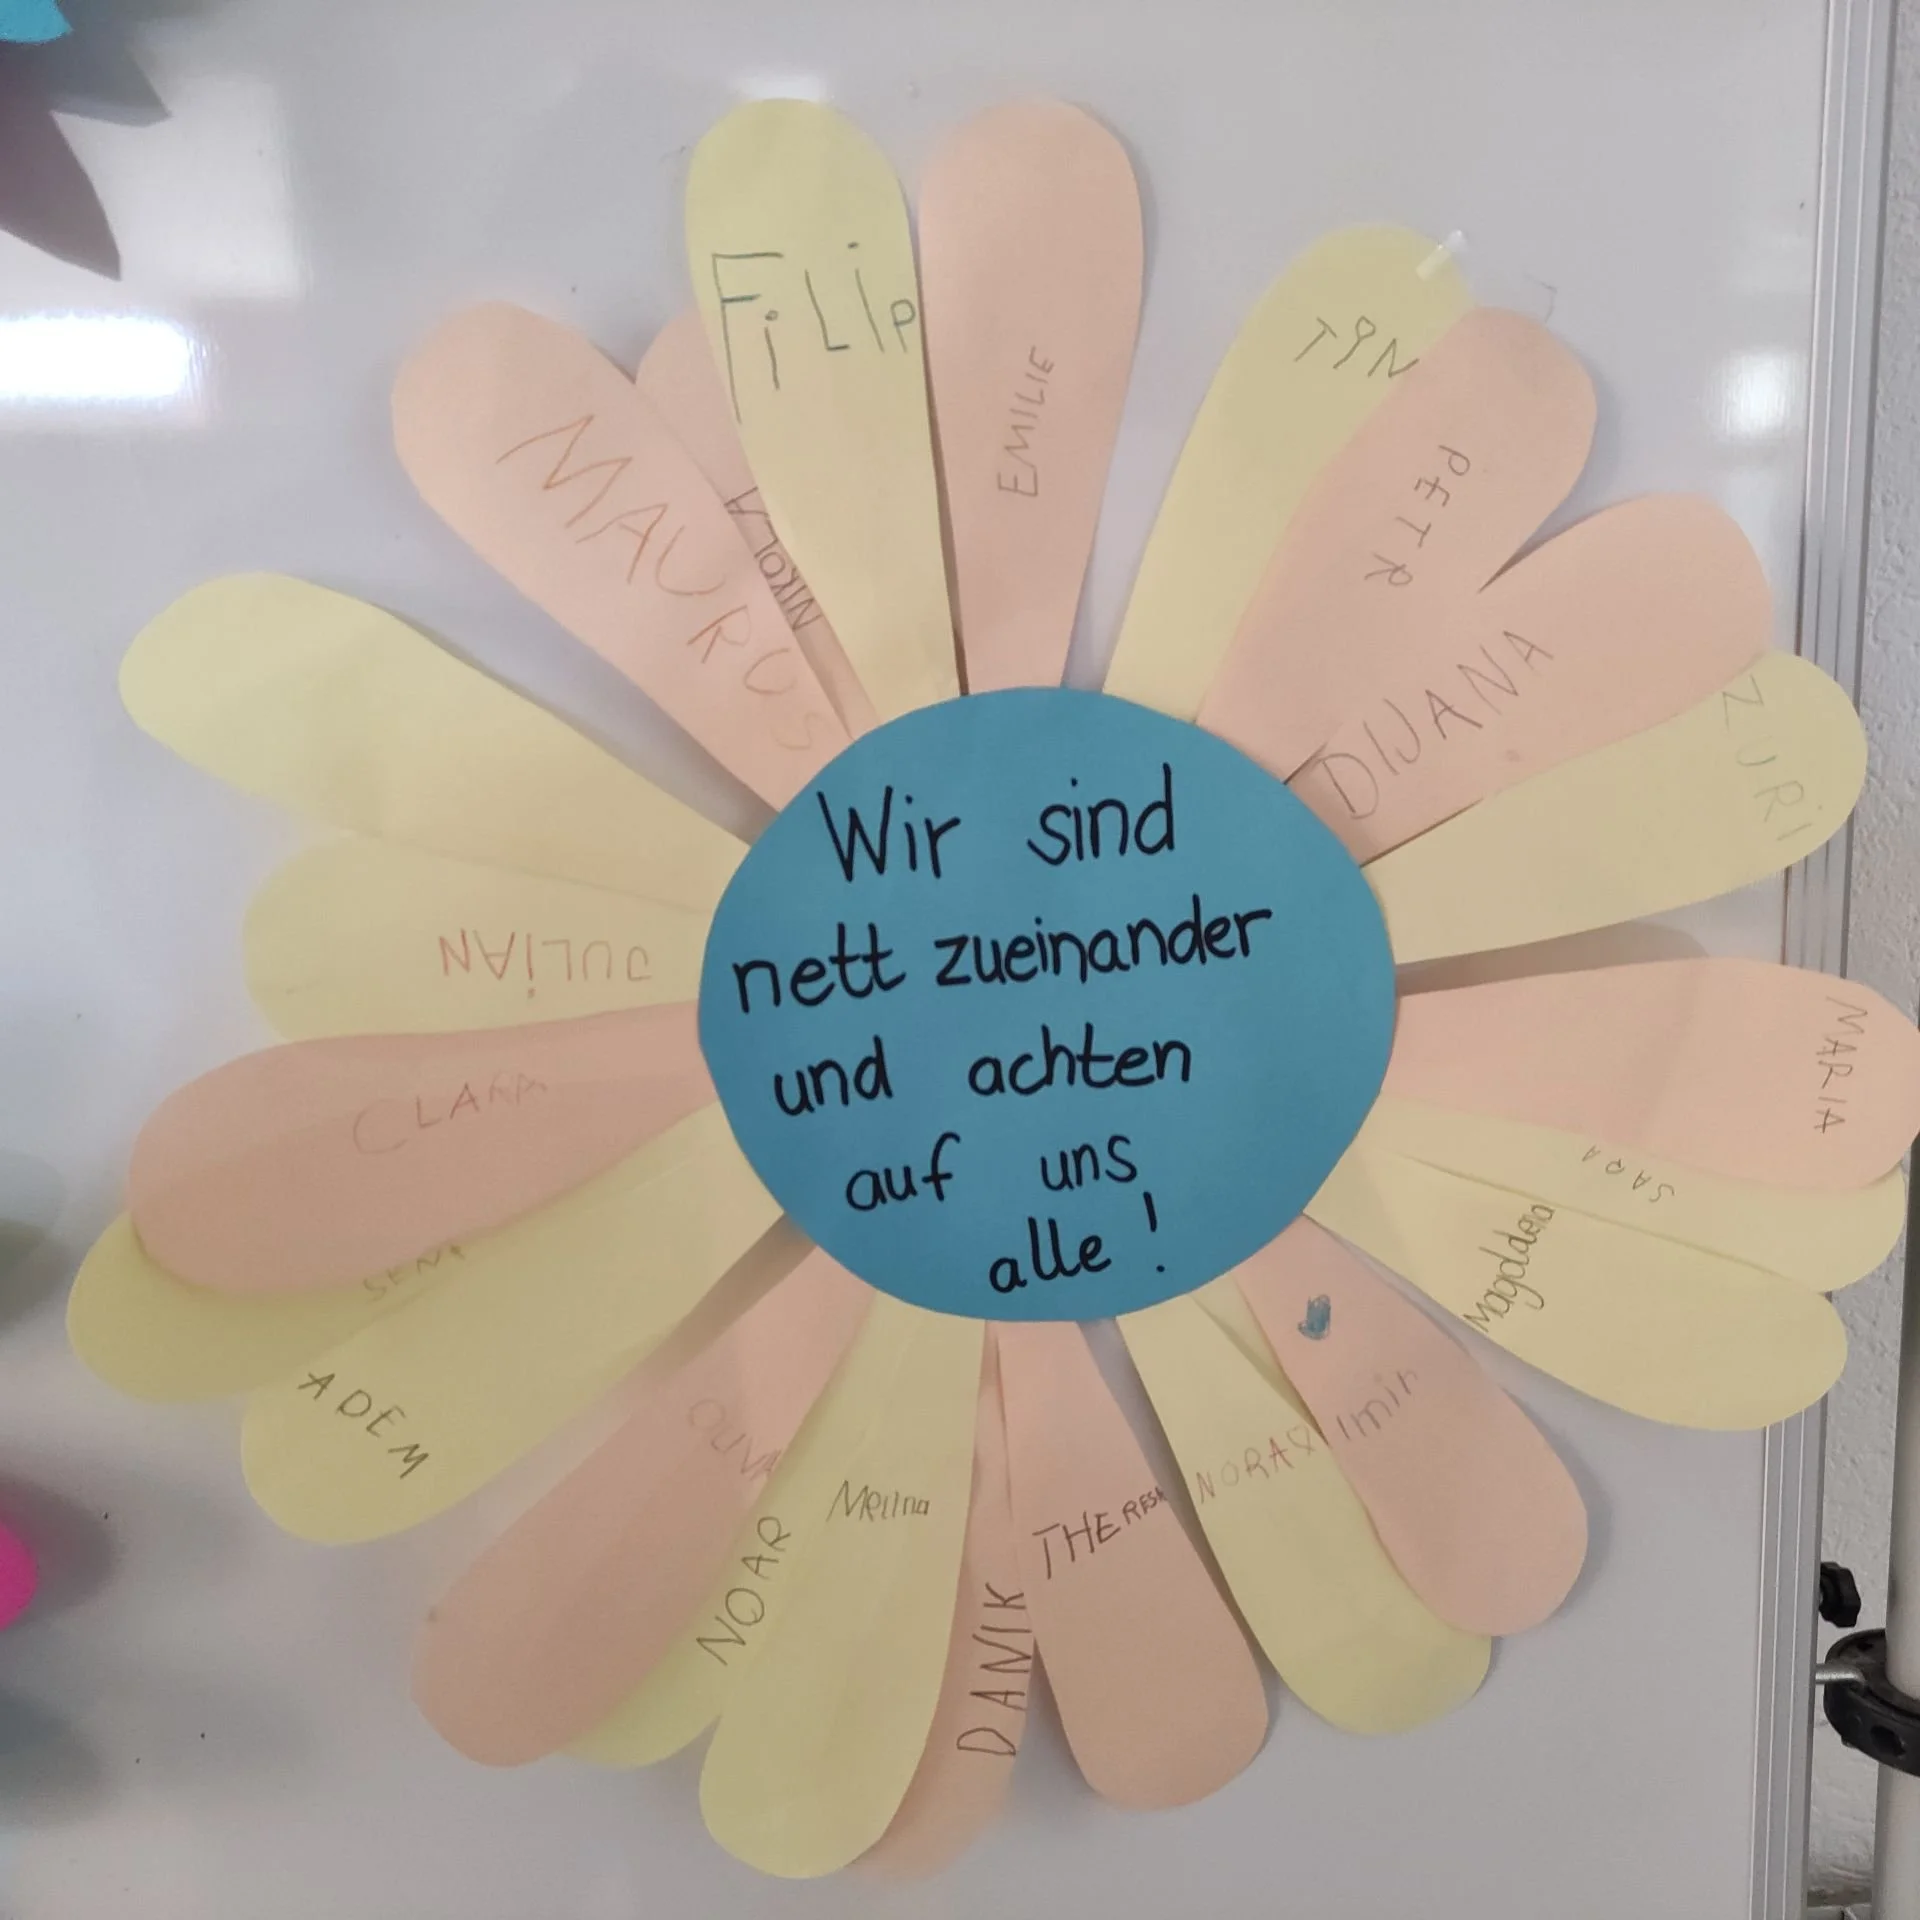 Wir sind
nett zueinander
und achten
auf uns
alle!
FiLip
EMILIE
TIN
PETR
DIJANA
ZURi
MARIA
SARA
Magdalena
Imir
NORA
THERESA
DANIK
Melina
NOAR
ADEM
CLARA
JULiAN
MAURUS
NIKOLLA